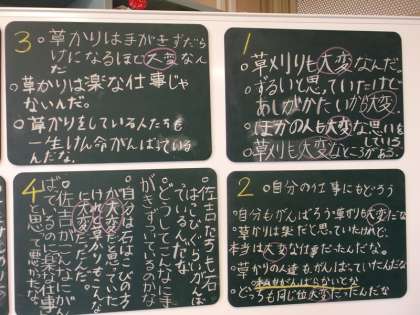 3
。草かりは手がきずだら
けになるほど大変なん
だ
。草かりは楽な仕事じゃ
ないんだ。
。草かりをしている人たちも
一生けん命がんばっている
んだな。
1
。草刈りも大変なんだ。
。ずるいと思っていたけど
あしがかたいから大変。
。ほかの人も大変な思いを
している
。草刈りも大変なところがある。
4
。佐吉たちも石
はこびぐらいがんば
っているんだな
。どうしてこんなに手
がきずっているのかな
。自分は石はこびの方
が大変だと思っていた
けれど草かりもこんな
に大変だったんだ。
。佐吉がこんなにがん
ばているのに楽な仕事
と思って悪かったな。
2
。自分の仕事にもどろう
。自分もがんばろう草かりも大変だな
。草かりは楽だと思っていたけれど、
本当は大変な仕事だったんだな。
。草かりの人達もがんばっていたんだな
。自分もがんばらないとな
。どっちも同じ位大変だったんだな